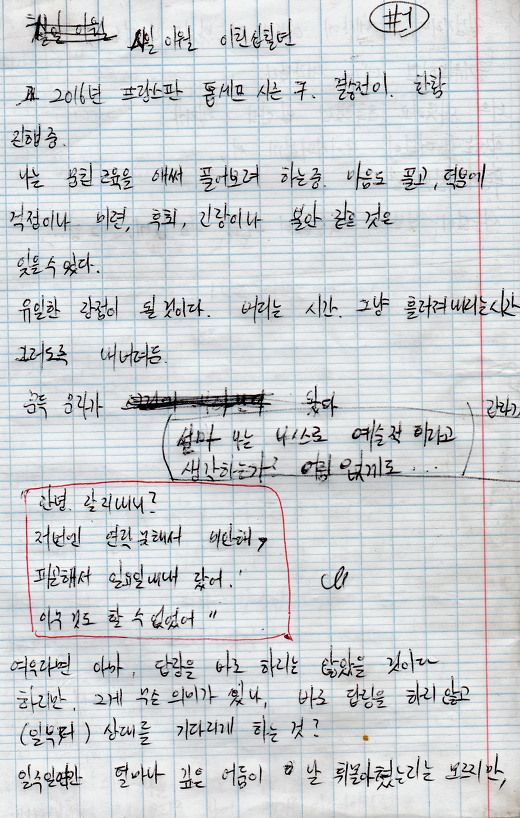 #1
일일 이월 이천십칠년
2016년 프랑스판 톱셰프 시즌 7. 결승전이. 한참
진행중.
나는 뭉친 근육을 애써 풀어보려 하는중. 마음도 풀고, 덕분에
걱정이나 미련, 후회, 긴장이나 불안 같은 것은
잊을 수 있다.
유일한 장점이 될 것이다. 버리는 시간. 그냥 흘려져 내리는 시간
그러도록 내버려둠.
문득 음악가 왔다
설마 나는 나 스스로 예술적 이라고
생각하는가? 어림 없게도...
안녕. 잘 지내니?
저번엔 연락 못해서 미안해,
피곤해서 일요일내내 잤어.
아무 것도 할 수 없었어"
여우라면 아마, 답장을 바로 하지는 않았을 것이다
하지만. 그게 무슨 의미가 있나, 바로 답장을 하지 않고
(일부러) 상대를 기다리게 하는 것?
일주일간 얼마나 깊은 어둠이 날 휘몰아쳤는지는 모르지만,